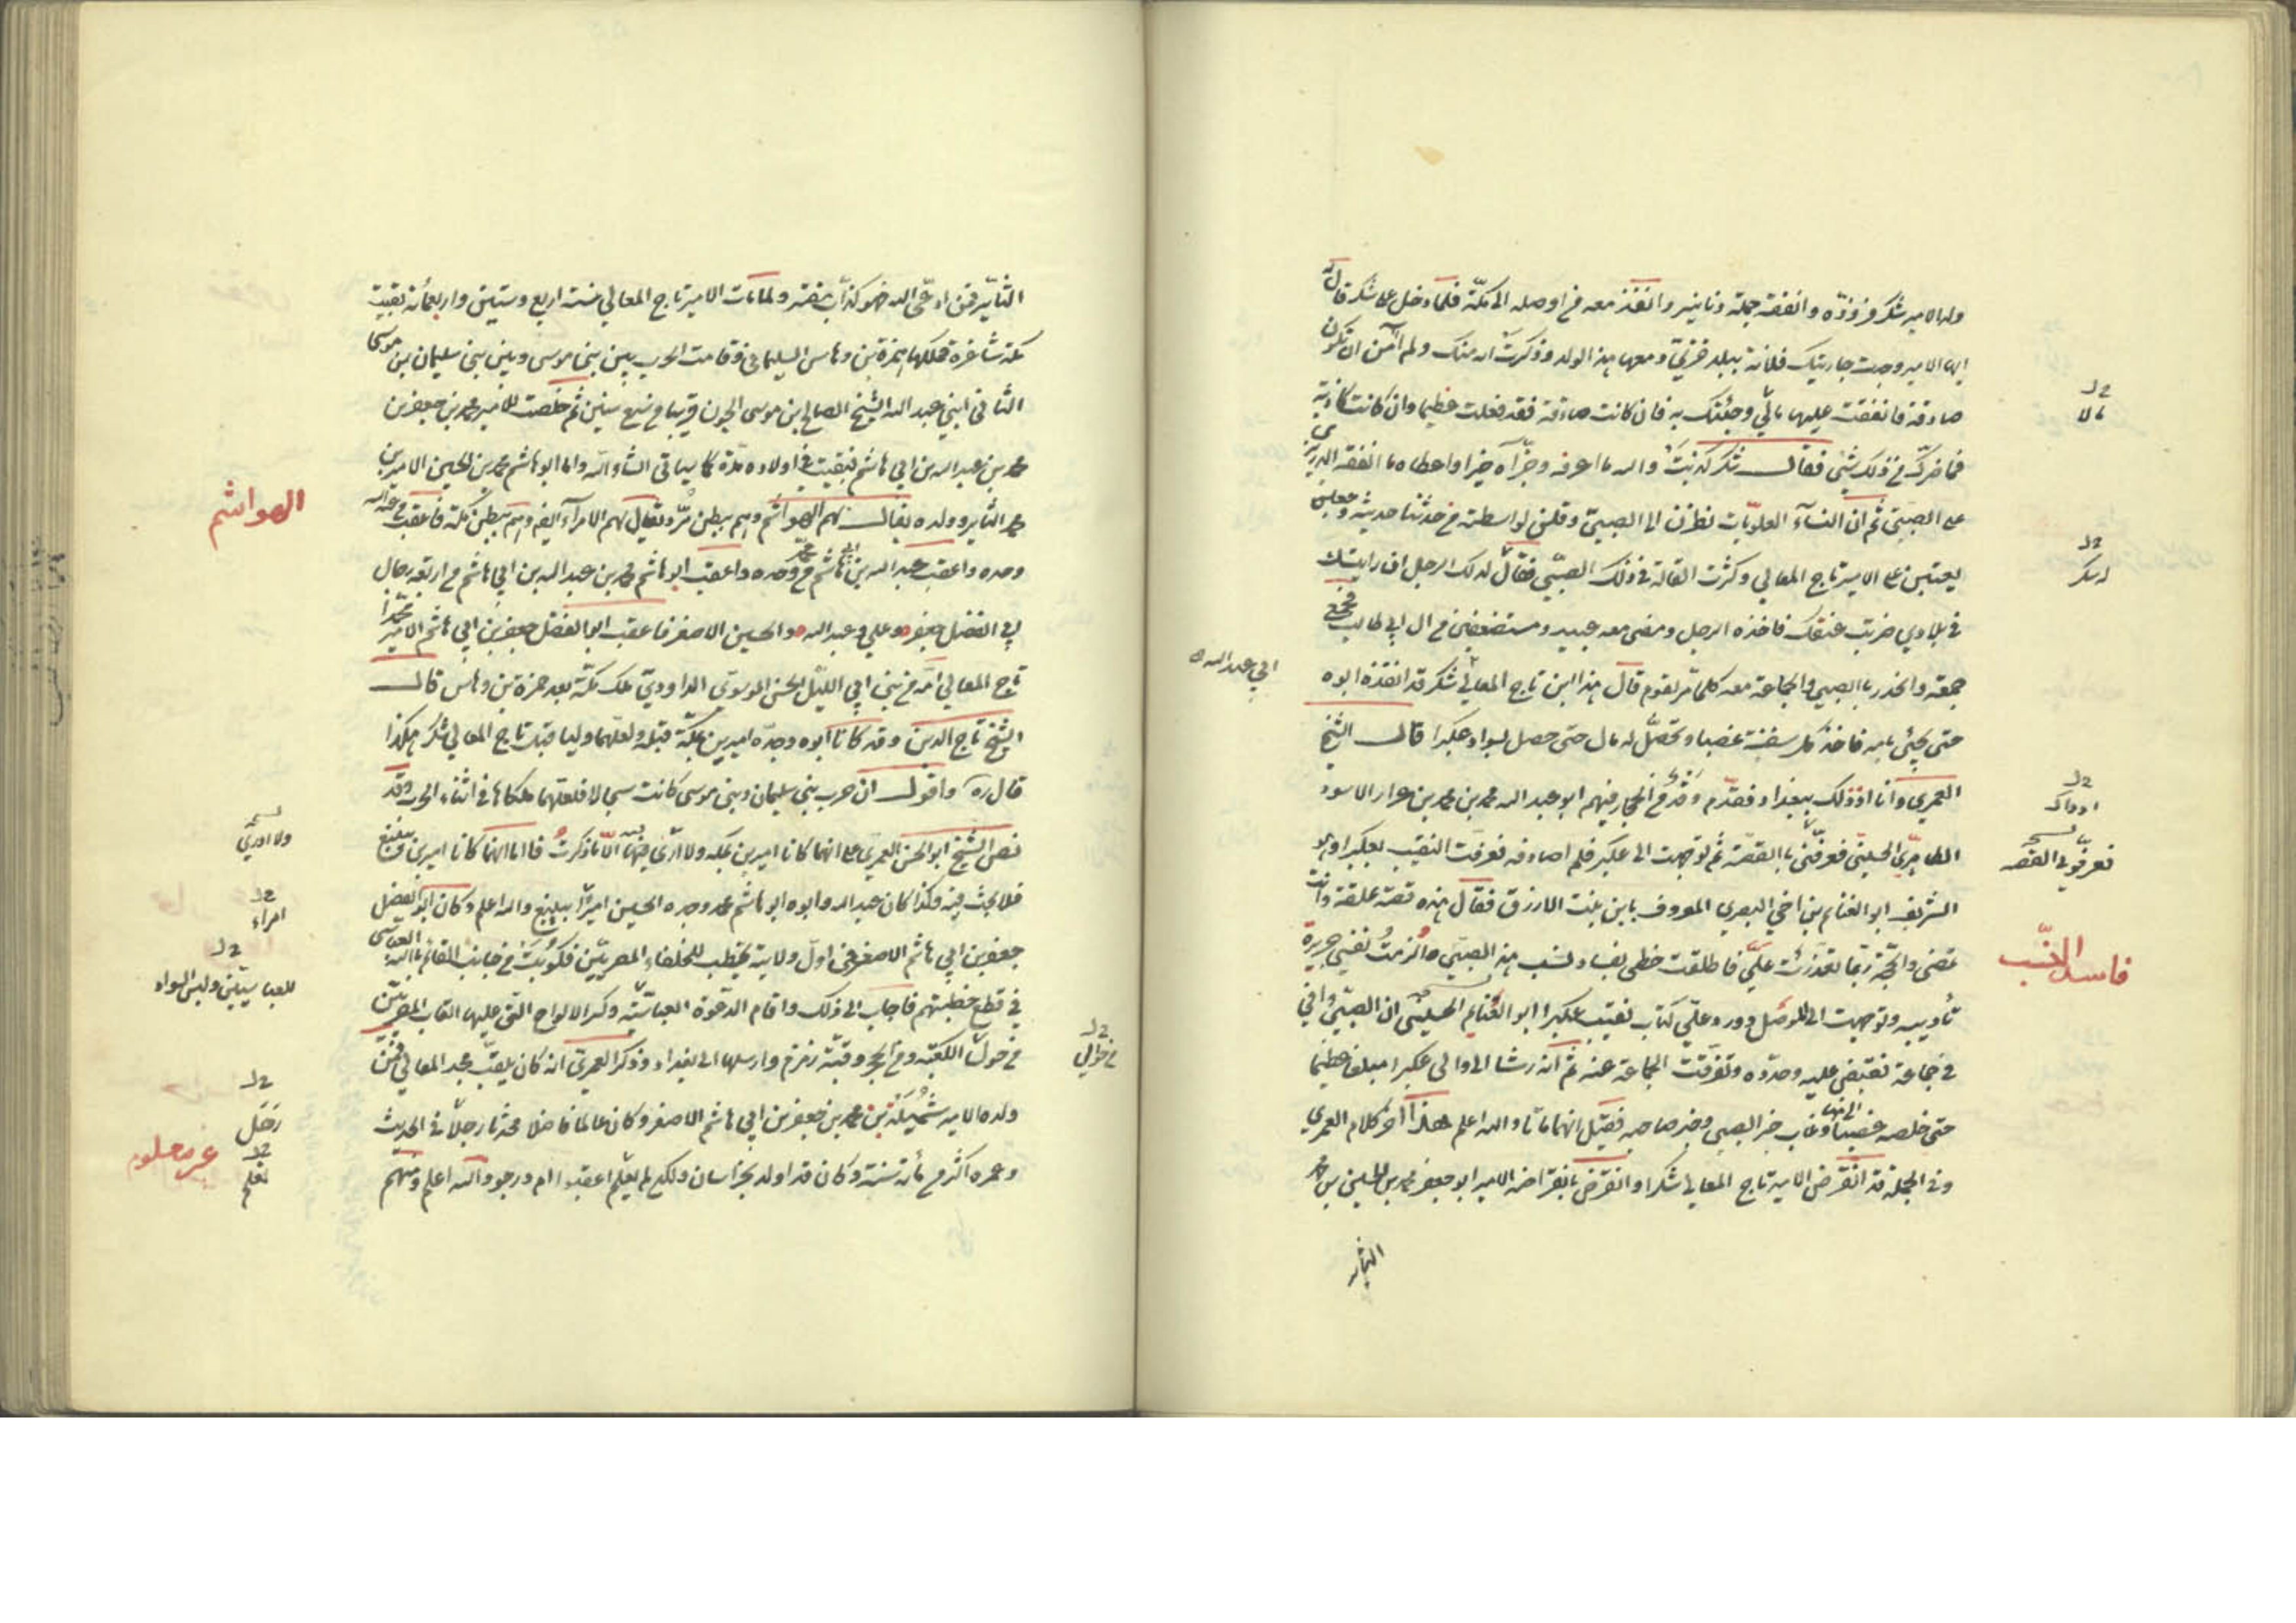 ولد الامير شكر فزوده وانفقه جملة دنانير وانفذ معه من اوصله الى مكة فلما دخل على شكر قال له
ايها الامير وجدت جاريتك فلانة ببلد غزني ومعها هذا الولد وذكرت انه منك ولم آمن ان تكون
صادقة فانفقت عليها مالي وجئتك به فان كانت صادقة فقد فعلت عظيما وان كانت كاذبة
فما ضرك من ذلك شئ فقال شكر كذبت والله ما اعرفه وجزاه خيرا واعطاه ما انفقه الدربزي
على الصبي ثم ان النساء العلويات نظرن الى الصبي وقلن لواسطته من حدثنا حديثه وجعلن
يعتبن على الامير تاج المعالي وكثرت القالة في ذلك الصبي فقال لذلك الرجل ان رايتك
في بلادي ضربت عنقك فاخذه الرجل ومضى معه عبيد ومستضعفين من ال ابي طالب فجمع
جمعه وانحدر بالصبي والجماعة معه كلما مر بقوم قال هذا ابن تاج المعالي شكر قد انفذه ابوه
حتى يجئ بامه فاخذ كل سفينة غصبا وتحصل له مال حتى حصل بسواد عكبرا قال الشيخ
العمري وانا اذ ذاك ببغداد فقدم وفد من الحجاز فيهم ابو عبد الله محمد بن محمد بن عرار الاسود
الطاهري الحسيني فعرفني بالقصة ثم توجهت الى عكبر فلم اصادفه فعرفت النقيب بعكبرا وهو
الشريف ابو الغنايم بن اخي البصري المعروف بابن بنت الازرق فقال هذه قصة علقة وانت
تمضي والحجة ربما تعذرت علي فاطلقت خطي بفساد نسب هذا الصبي والزمت نفسي جريرة
تأديبه وتوجهت الى الموصل وورد علي كتاب نقيب عكبرا ابو الغنايم الحسيني ان الصبي وافي
في جماعة فقبض عليه وحدوه وتفرقت الجماعة عنه ثم انه رشا الى والي عكبرا مبلغا عظيما
حتى خلصه غصبا وغاب خبر الصبي وخبر صاحبه فقيل انهما ماتا والله اعلم هذا آخر كلام العمري
وفي الجملة قد انقرض الامير تاج المعالي شكر وانقرض بانقراضه الامير ابو جعفر محمد بن الحسين بن محمد
الثاير
مالا
له شكر
ابي عبد الله
اذ ذاك
نسخه
تعرفوني القصه
فاسد النسب
الثاير فمن ادعى اليه فهو كذاب مفتر ولما مات الامير تاج المعالي سنة اربع وستين واربعمأة بقيت
مكة شاغرة فملكها حمزة بن وهاس السليماني وقامت الحرب بين بني موسى وبين بني سليمان بن موسى
الثاني ابني عبد الله الشيخ الصالح بن موسى الجون قريبا من سبع سنين ثم خلصت للامير محمد بن جعفر بن
محمد بن عبد الله بن ابي هاشم فبقيت في اولاده مدة كما سياتي انشاء الله واما ابو هاشم محمد بن الحسين الامير بن
محمد الثاير وولده يقال لهم الهواشم وهم ببطن مر ويقال لهم الامرآء ايضا وهم ببطن مكة فاعقب من عبد الله
وحده واعقب عبد الله بن ابي هاشم من محمد وحده واعقب ابو هاشم محمد بن عبد الله بن ابي هاشم من اربعة رجال
ابي الفضل جعفر وعلي وعبد الله والحسين الاصغر فاعقب ابو الفضل جعفر بن ابي هاشم الامير محمدا
تاج المعالي امه من بني ابي الليل الحسن الموسوي الداودي ملك مكة بعد حمزة بن وهاس قال
الشيخ تاج الدين وقد كانا ابوه وجده اميرين بمكة قبله ولعلهما وليا قبل تاج المعالي شكر هكذا
قال ره واقول ان حرب بني سليمان وبني موسى كانت سجالا فلعلهما ملكاها في اثناء الحرب وقد
نص الشيخ ابو الحسن العمري على انهما كانا اميرين بمكه ولا ارى فيه الا ما ذكرت فاما انهما كانا اميرين بينبع
فلا بحث فيه وكذا كان عبد الله وابوه ابو هاشم محمد وجده الحسين اميرا بينبع والله اعلم وكان ابو الفضل
جعفر بن ابي هاشم الاصغر في اول ولايته يخطب للخلفاء المصريين فكوتب من جانب القائم بالله العباسي
في قطع خطبتهم فاجاب الى ذلك واقام الدعوة العباسية وكسر الالواح التي عليها القاب المصريين
من حول الكعبة ومن الحجر وقبة زمزم وارسلها الى بغداد وذكر العمري انه كان يلقب مجد المعالي فمن
ولده الامير شميلة بن محمد بن جعفر بن ابي هاشم الاصغر وكان عالما فاضلا محدثا رحل في الحديث
وعمره اكثر من مأة سنة وكان قد اولد بخراسان ولكن لم يعلم اعقبوا ام درجوا والله اعلم ومنهم
الهواشم
نسخه
ولا ادري
امراء
للعباسيين ولبس السواد
من حوالي
رحل
نعلم
غير معلوم